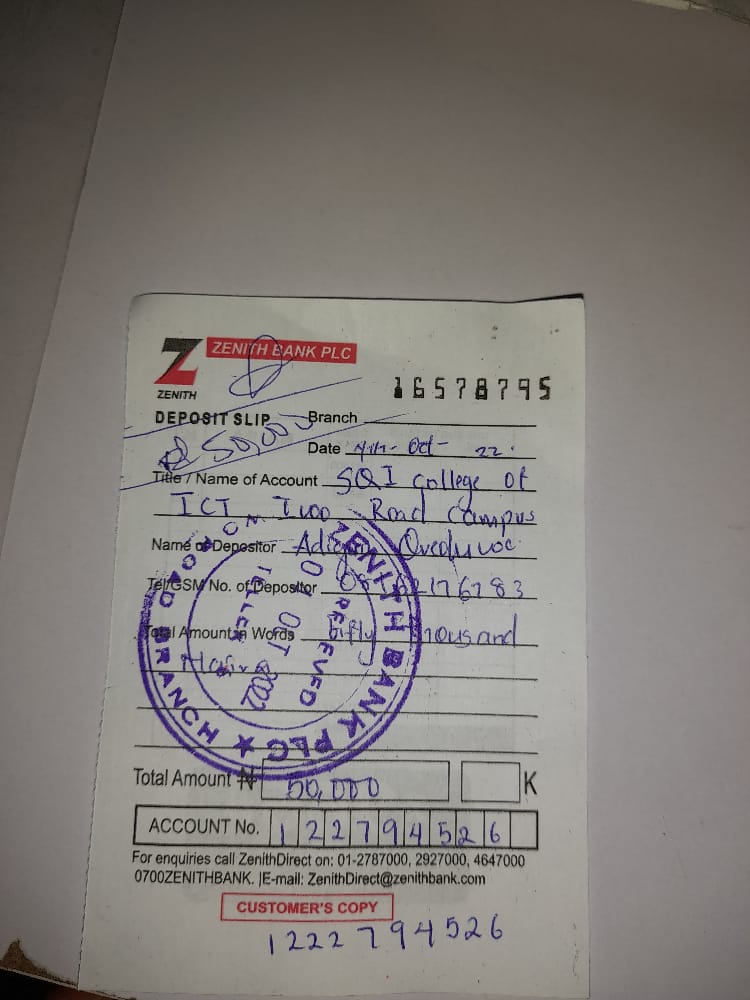 Z ZENITH BANK PLC
ZENITH
16578795
DEPOSIT SLIP Branch
₦50,000
Date Oct- 22.
Title / Name of Account SQI College of
ICT, Iwo Road Campus
Name of Depositor
Tel/GSM No. of Depositor
Total Amount in Words fifty Thousand
Naira
ZENITH BANK PLC ★ ROAD BRANCH
TELLER
OCT 2022
RECEIVED
Total Amount ₦ 50,000 K
ACCOUNT No. 1 2 2 7 9 4 5 2 6
For enquiries call ZenithDirect on: 01-2787000, 2927000, 4647000
0700ZENITHBANK. |E-mail: ZenithDirect@zenithbank.com
CUSTOMER'S COPY
1222794526